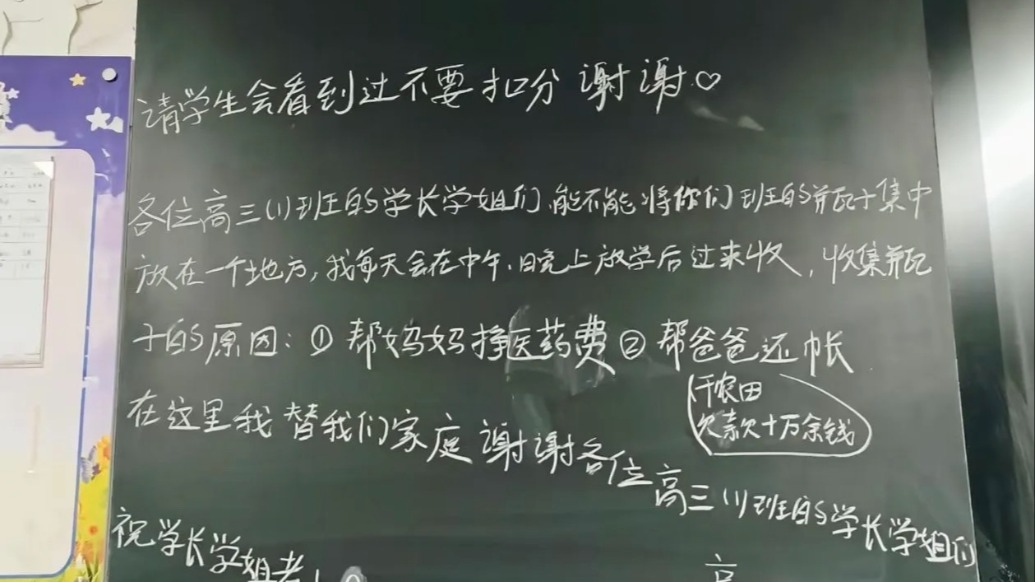 请学生会看到过不要扣分 谢谢♡
各位高三(1)班的学长学姐们,能不能将你们班的瓶子集中
放在一个地方,我每天会在中午、晚上放学后过来收,收集瓶
子的原因:①帮妈妈挣医药费②帮爸爸还帐
干农田
欠款十万余钱
在这里我替我们家庭谢谢各位高三(1)班的学长学姐们
祝学长学姐考
高